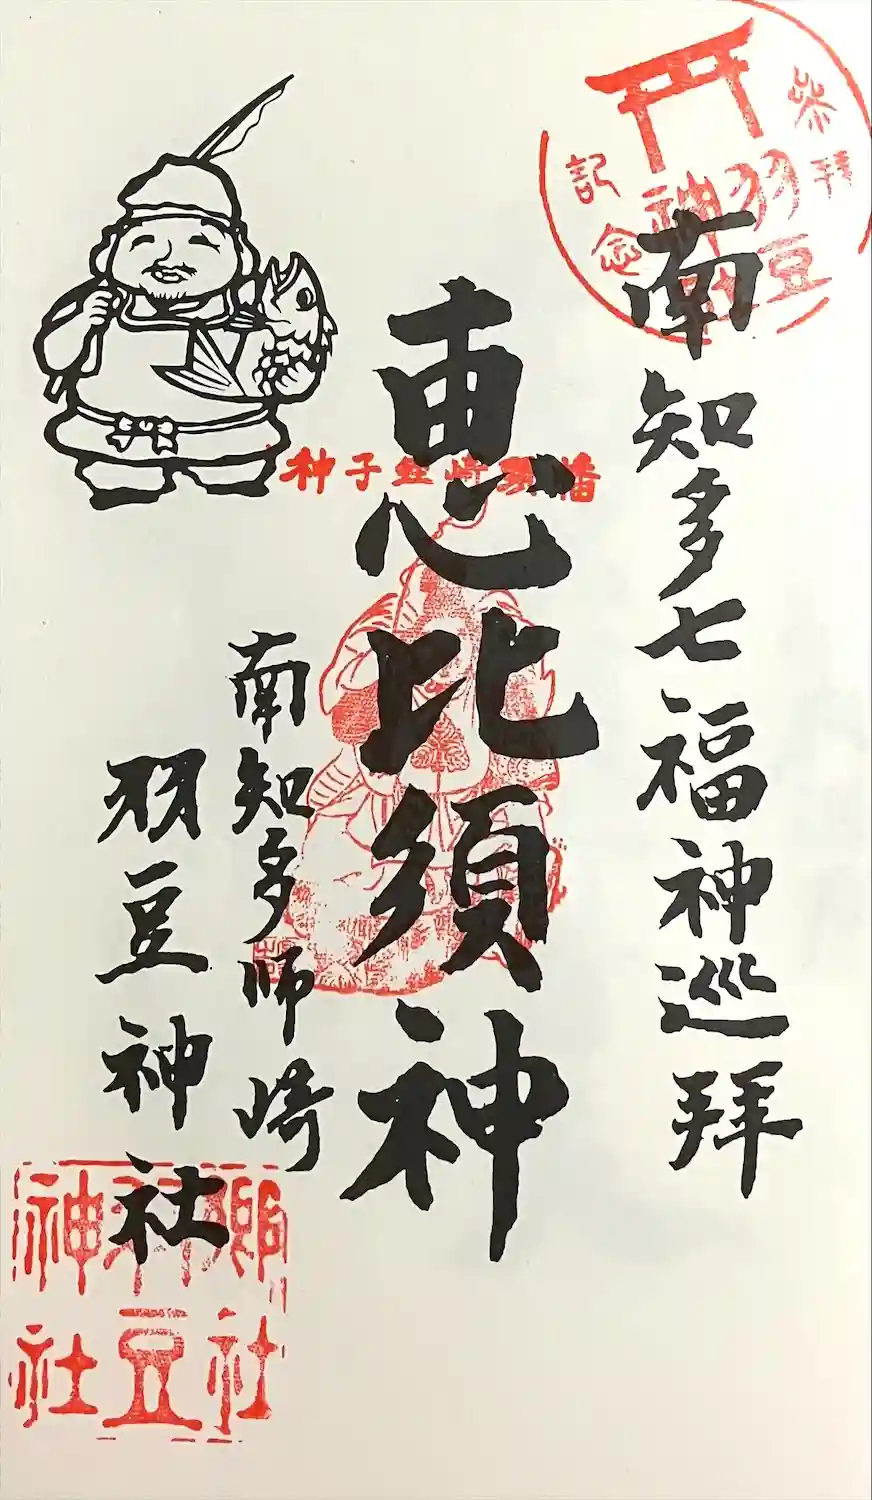 南知多七福神巡拝
恵比須神
南知多師崎
羽豆神社
参拝
記念
羽豆
神社
郷社
羽豆
神社